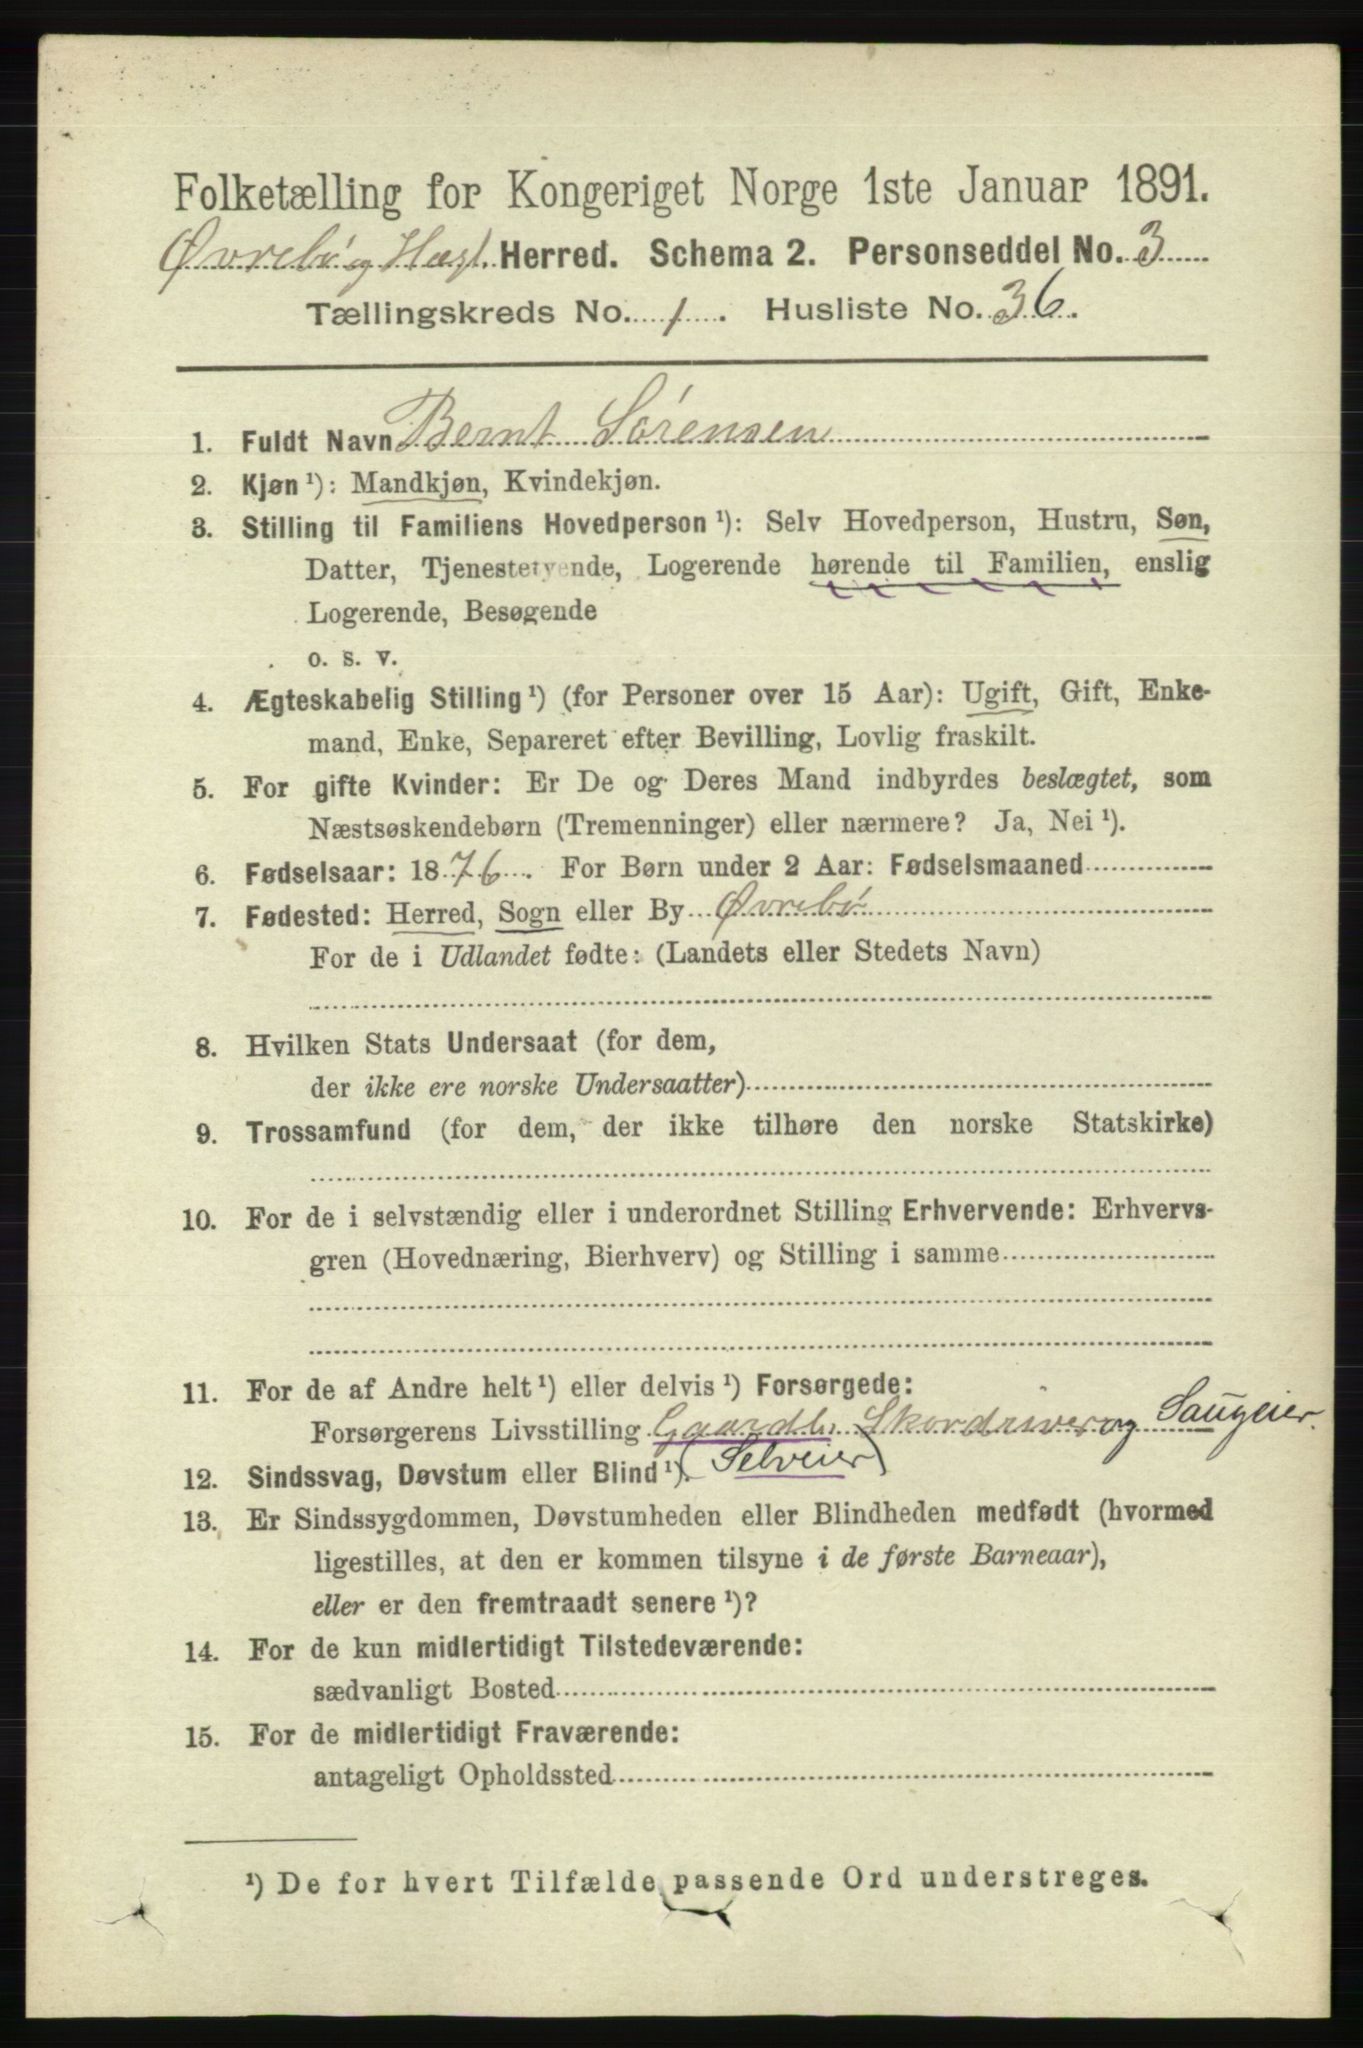 Folketælling for Kongeriget Norge 1ste Januar 1891.
Øvrebø og Hægl. Herred. Schema 2. Personseddel No. 3
Tællingskreds No. 1. Husliste No. 36.
1. Fuldt Navn Bernt Sørensen
2. Kjøn ¹): Mandkjøn, Kvindekjøn.
3. Stilling til Familiens Hovedperson ¹): Selv Hovedperson, Hustru, Søn,
Datter, Tjenestetyende, Logerende hørende til Familien, enslig
Logerende, Besøgende
o. s. v.
4. Ægteskabelig Stilling ¹) (for Personer over 15 Aar): Ugift, Gift, Enke-
mand, Enke, Separeret efter Bevilling, Lovlig fraskilt.
5. For gifte Kvinder: Er De og Deres Mand indbyrdes beslægtet, som
Næstsøskendebørn (Tremenninger) eller nærmere? Ja, Nei ¹).
6. Fødselsaar: 1876. For Børn under 2 Aar: Fødselsmaaned
7. Fødested: Herred, Sogn eller By Øvrebø
For de i Udlandet fødte: (Landets eller Stedets Navn)
8. Hvilken Stats Undersaat (for dem,
der ikke ere norske Undersaatter)
9. Trossamfund (for dem, der ikke tilhøre den norske Statskirke)
10. For de i selvstændig eller i underordnet Stilling Erhvervende: Erhvervs-
gren (Hovednæring, Bierhverv) og Stilling i samme
11. For de af Andre helt ¹) eller delvis ¹) Forsørgede:
Forsørgerens Livsstilling Gaardb. og Saugeier.
12. Sindssvag, Døvstum eller Blind ¹). (Selveier)
13. Er Sindssygdommen, Døvstumheden eller Blindheden medfødt (hvormed
ligestilles, at den er kommen tilsyne i de første Barneaar),
eller er den fremtraadt senere ¹)?
14. For de kun midlertidigt Tilstedeværende:
sædvanligt Bosted
15. For de midlertidigt Fraværende:
antageligt Opholdssted
¹) De for hvert Tilfælde passende Ord understreges.